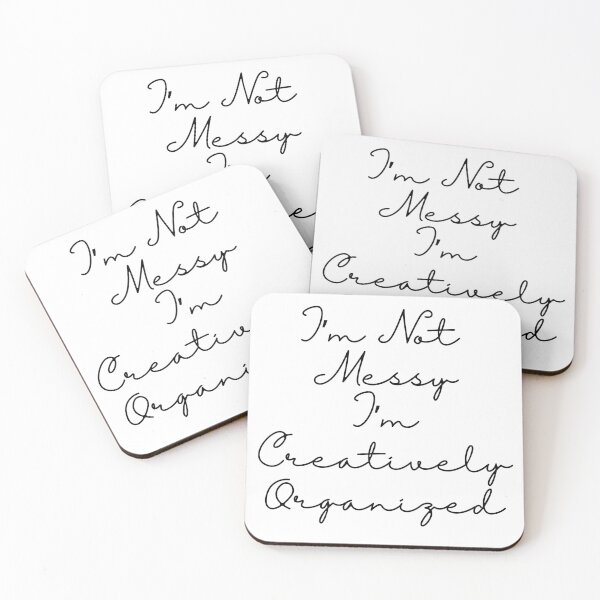 I'm Not
Messy
I'm Not
Messy
I'm
Creatively
I'm Not
Messy
I'm
I'm Not
Messy
I'm
Creatively
Organized